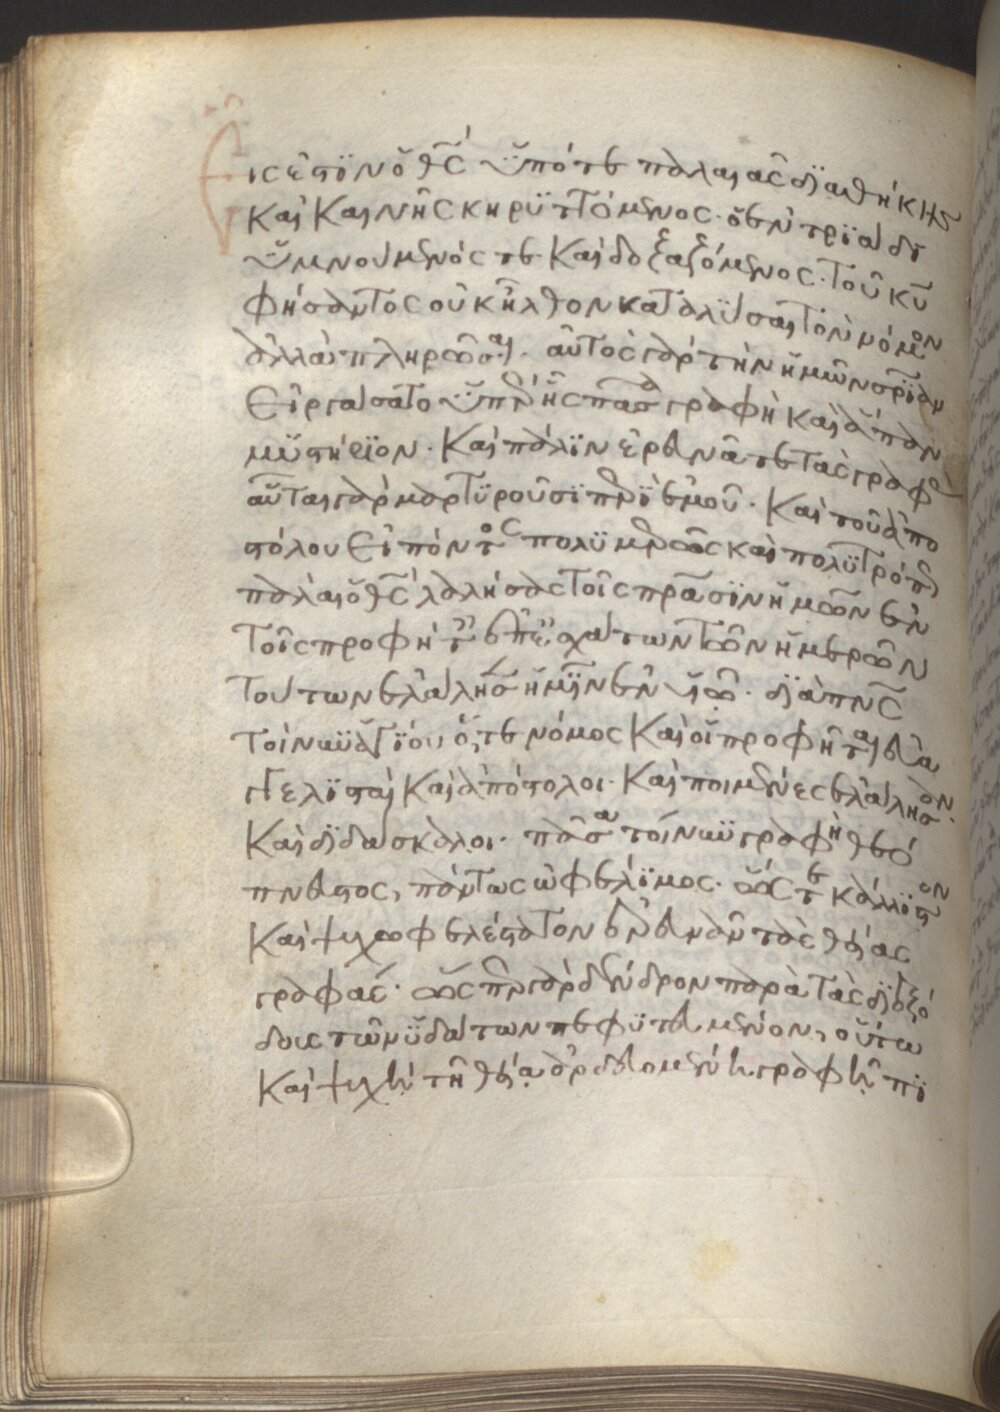 Εἷς ἐστϊν ὁ θς ὑπό τε παλαιᾶς δϊαθήκης
καὶ καινῆς κηρϋττόμενος· ὁ ἐν τρϊάδι
ὑμνούμενός τε καὶ δοξαζόμενος· τοῦ κυ
φήσαντος οὐκ ἦλθον καταλῦσαι τὸν νόμον
ἀλλὰ πληρῶσαι· αὐτὸς γὰρ τὴν ἡμῶν σρϊαν
εἰργάσατο ὑπὲρ ἧς πᾶσα γραφὴ καὶ ἅπαν
μϋστήριον· καὶ πάλϊν ἐρευνᾶτε τὰς γραφάς
αὗται γὰρ μαρτϋροῦσϊ περὶ ἐμοῦ· καὶ τοῦ ἀπο
στόλου εἰπόντος πολϋμερῶς καὶ πολϋτρόπως
πάλαι ὁ θς λαλήσας τοῖς πρασϊν ἡμῶν ἐν
τοῖς προφήταις ἐπ ἐσχάτων τῶν ἡμερῶν
τούτων ἐλάλησεν ἡμῖν ἐν υἱῶ· δϊὰ πνς
τοίνυν ἁγΐου ὅ, τε νόμος καὶ οἱ προφῆται εὐα
γγελϊσταὶ καὶ ἀπόστολοι· καὶ ποιμένες ἐλάλησαν·
καὶ δϊδάσκαλοι· πᾶσα τοίνυν γραφὴ θεό
πνευστος, πάντως ὠφελϊμος· ὥστε κάλλϊστον
καὶ ψυχωφελέστατον ἐρευνᾶν τὰς θείας
γραφάς· ὥσπερ γὰρ δένδρον παρὰ τὰς δϊεξό
δους τῶν ὑδάτων πεφϋτευμένον, οὕτω
καὶ ψυχὴ τῆ θεία ἀρδευομένη γραφῆ πϊ